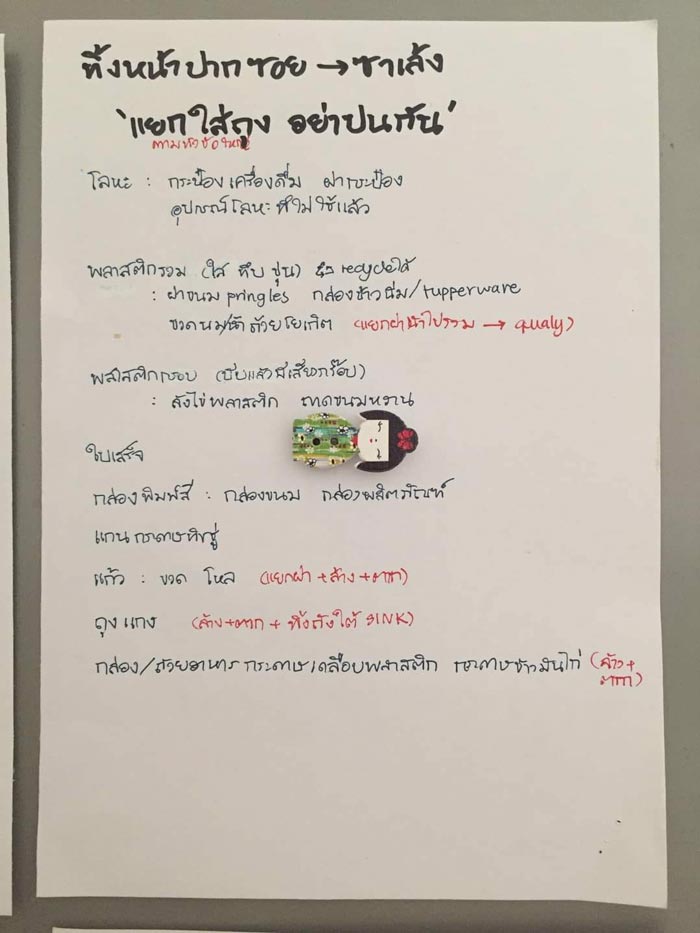 ทิ้งหน้าปากซอย → ซาเล้ง
'แยกใส่ถุง อย่าปนกัน'
ตามหัวข้อใหญ่
โลหะ : กระป๋องเครื่องดื่ม ฝากระป๋อง
อุปกรณ์โลหะที่ไม่ใช้แล้ว
พลาสติกรวม (ใส ทึบ ขุ่น) recycleได้
: ฝาขนม pringles กล่องข้าวนิ่ม/tupperware
ขวดนม/น้ำ ถ้วยโยเกิต (แยกฝาน้ำไปรวม → qualy)
พลาสติกกรอบ (บีบแล้วมีเสียงกร๊อบ)
: ลังไข่พลาสติก ถาดขนมหวาน
ใบเสร็จ
กล่องพิมพ์สี : กล่องขนม กล่องผลิตภัณฑ์
แกนกระดาษทิชชู่
แก้ว : ขวด โหล (แยกฝา + ล้าง + ตาก)
ถุงแกง (ล้าง+ตาก + ทิ้งถังใต้ SINK)
กล่อง/ถ้วยอาหาร กระดาษเคลือบพลาสติก กระดาษข้าวมันไก่ (ล้าง+
ตาก)